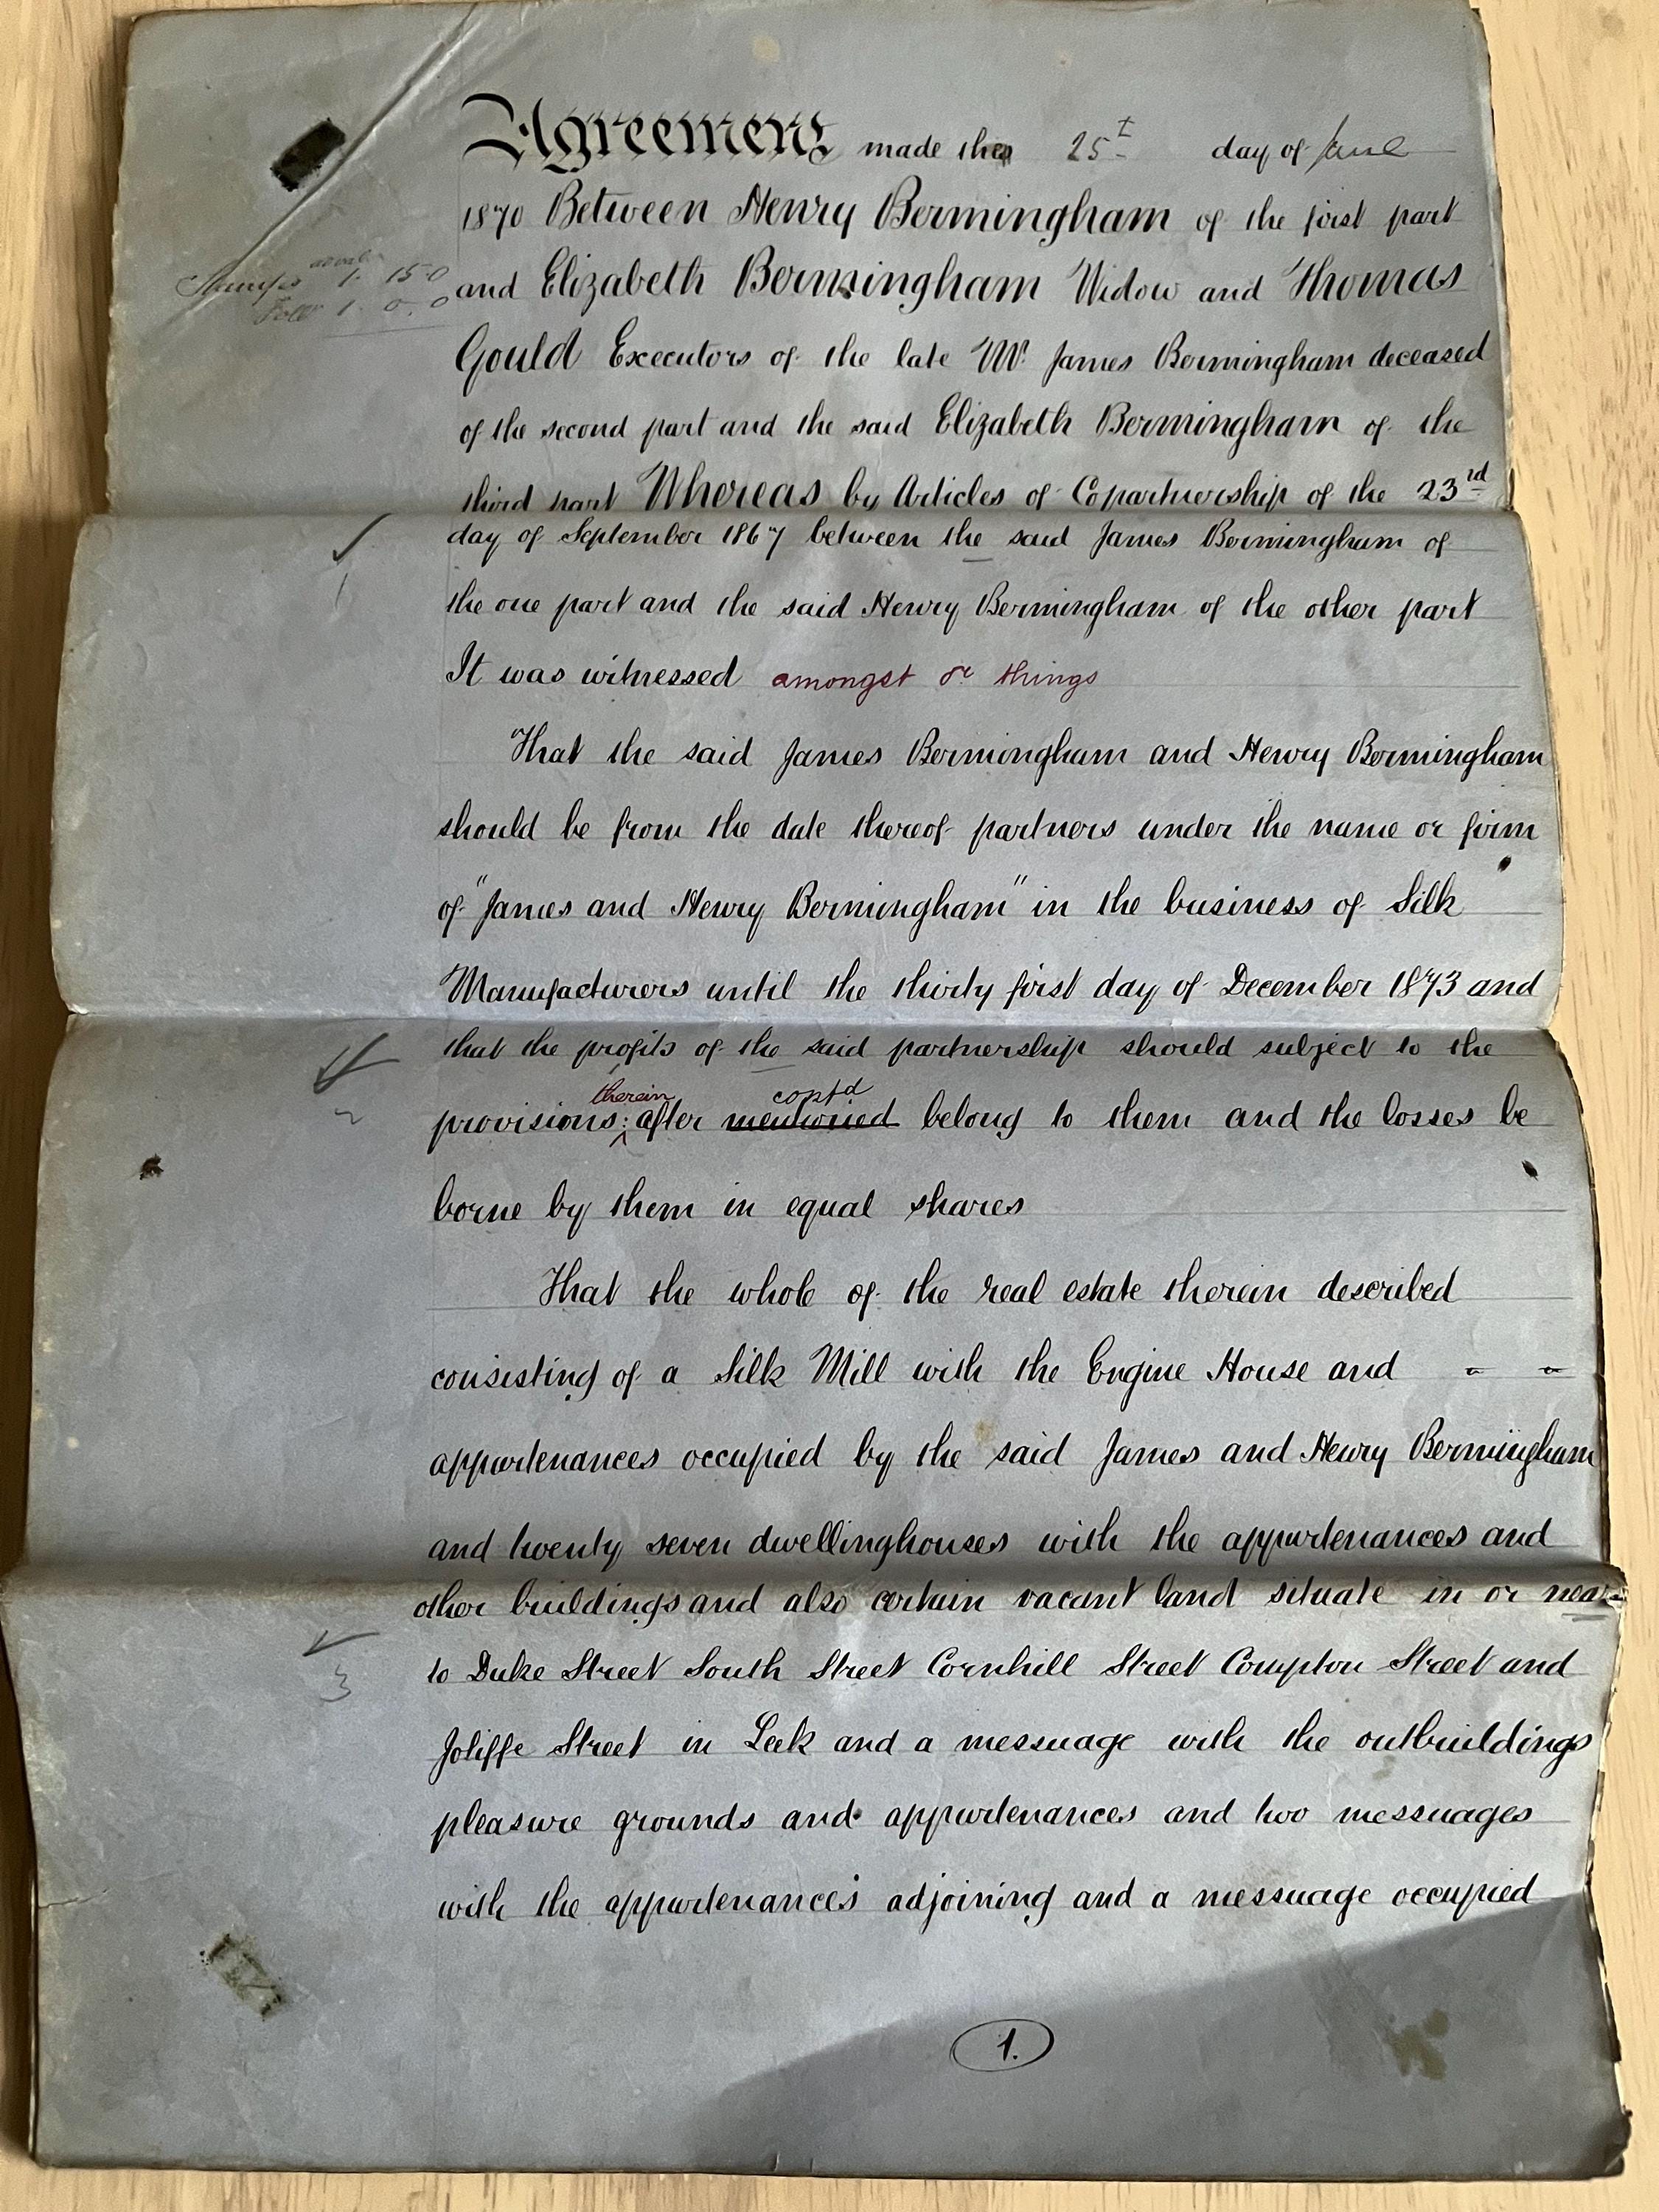 Agreement made the 25t day of June
1870 Between Henry Bermingham of the first part
Stamps 1. 15 0
1. 0. 0
and Elizabeth Bermingham Widow and Thomas
Gould Executors of the late Mr. James Bermingham deceased
of the second part and the said Elizabeth Bermingham of the
third part Whereas by Articles of Copartnership of the 23rd
day of September 1867 between the said James Bermingham of
1
the one part and the said Henry Bermingham of the other part
It was witnessed amongst or things
That the said James Bermingham and Henry Bermingham
should be from the date thereof partners under the name or firm
of "James and Henry Bermingham" in the business of Silk
Manufacturers until the thirty first day of December 1873 and
that the profits of the said partnership should subject to the
therein contd
2
provisions: after mentioned belong to them and the losses be
borne by them in equal shares
That the whole of the real estate therein described
consisting of a Silk Mill with the Engine House and
appurtenances occupied by the said James and Henry Bermingham
and twenty seven dwellinghouses with the appurtenances and
other buildings and also certain vacant land situate in or near
3
to Duke Street South Street Cornhill Street Compton Street and
Joliffe Street in Leek and a messuage with the outbuildings
pleasure grounds and appurtenances and two messuages
with the appurtenances adjoining and a messuage occupied
1.